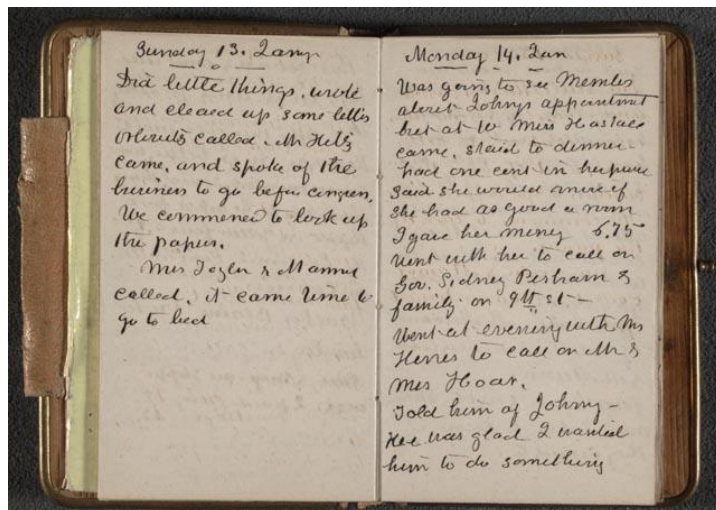 Sunday 13. Jany
Did little things, wrote
and cleared up some letters
called. Mr Hitz
came, and spoke of the
business to go before congress,
We commenced to look up
the papers.
Mrs Taylor & Mannie
called, it came time to
go to bed
Monday 14. Jan
Was going to see Member
about Johnys appointment
but at 10 Miss
came, staid to dinner
had one cent in her purse
said she would if
she had as good a room
I gave her money 6.75
went with her to call on
Gov. Sidney Perham &
family on 9th st —
Went at evening with Mrs
to call on Mr &
Mrs Hoar.
Told him of Johny —
He was glad I wanted
him to do something